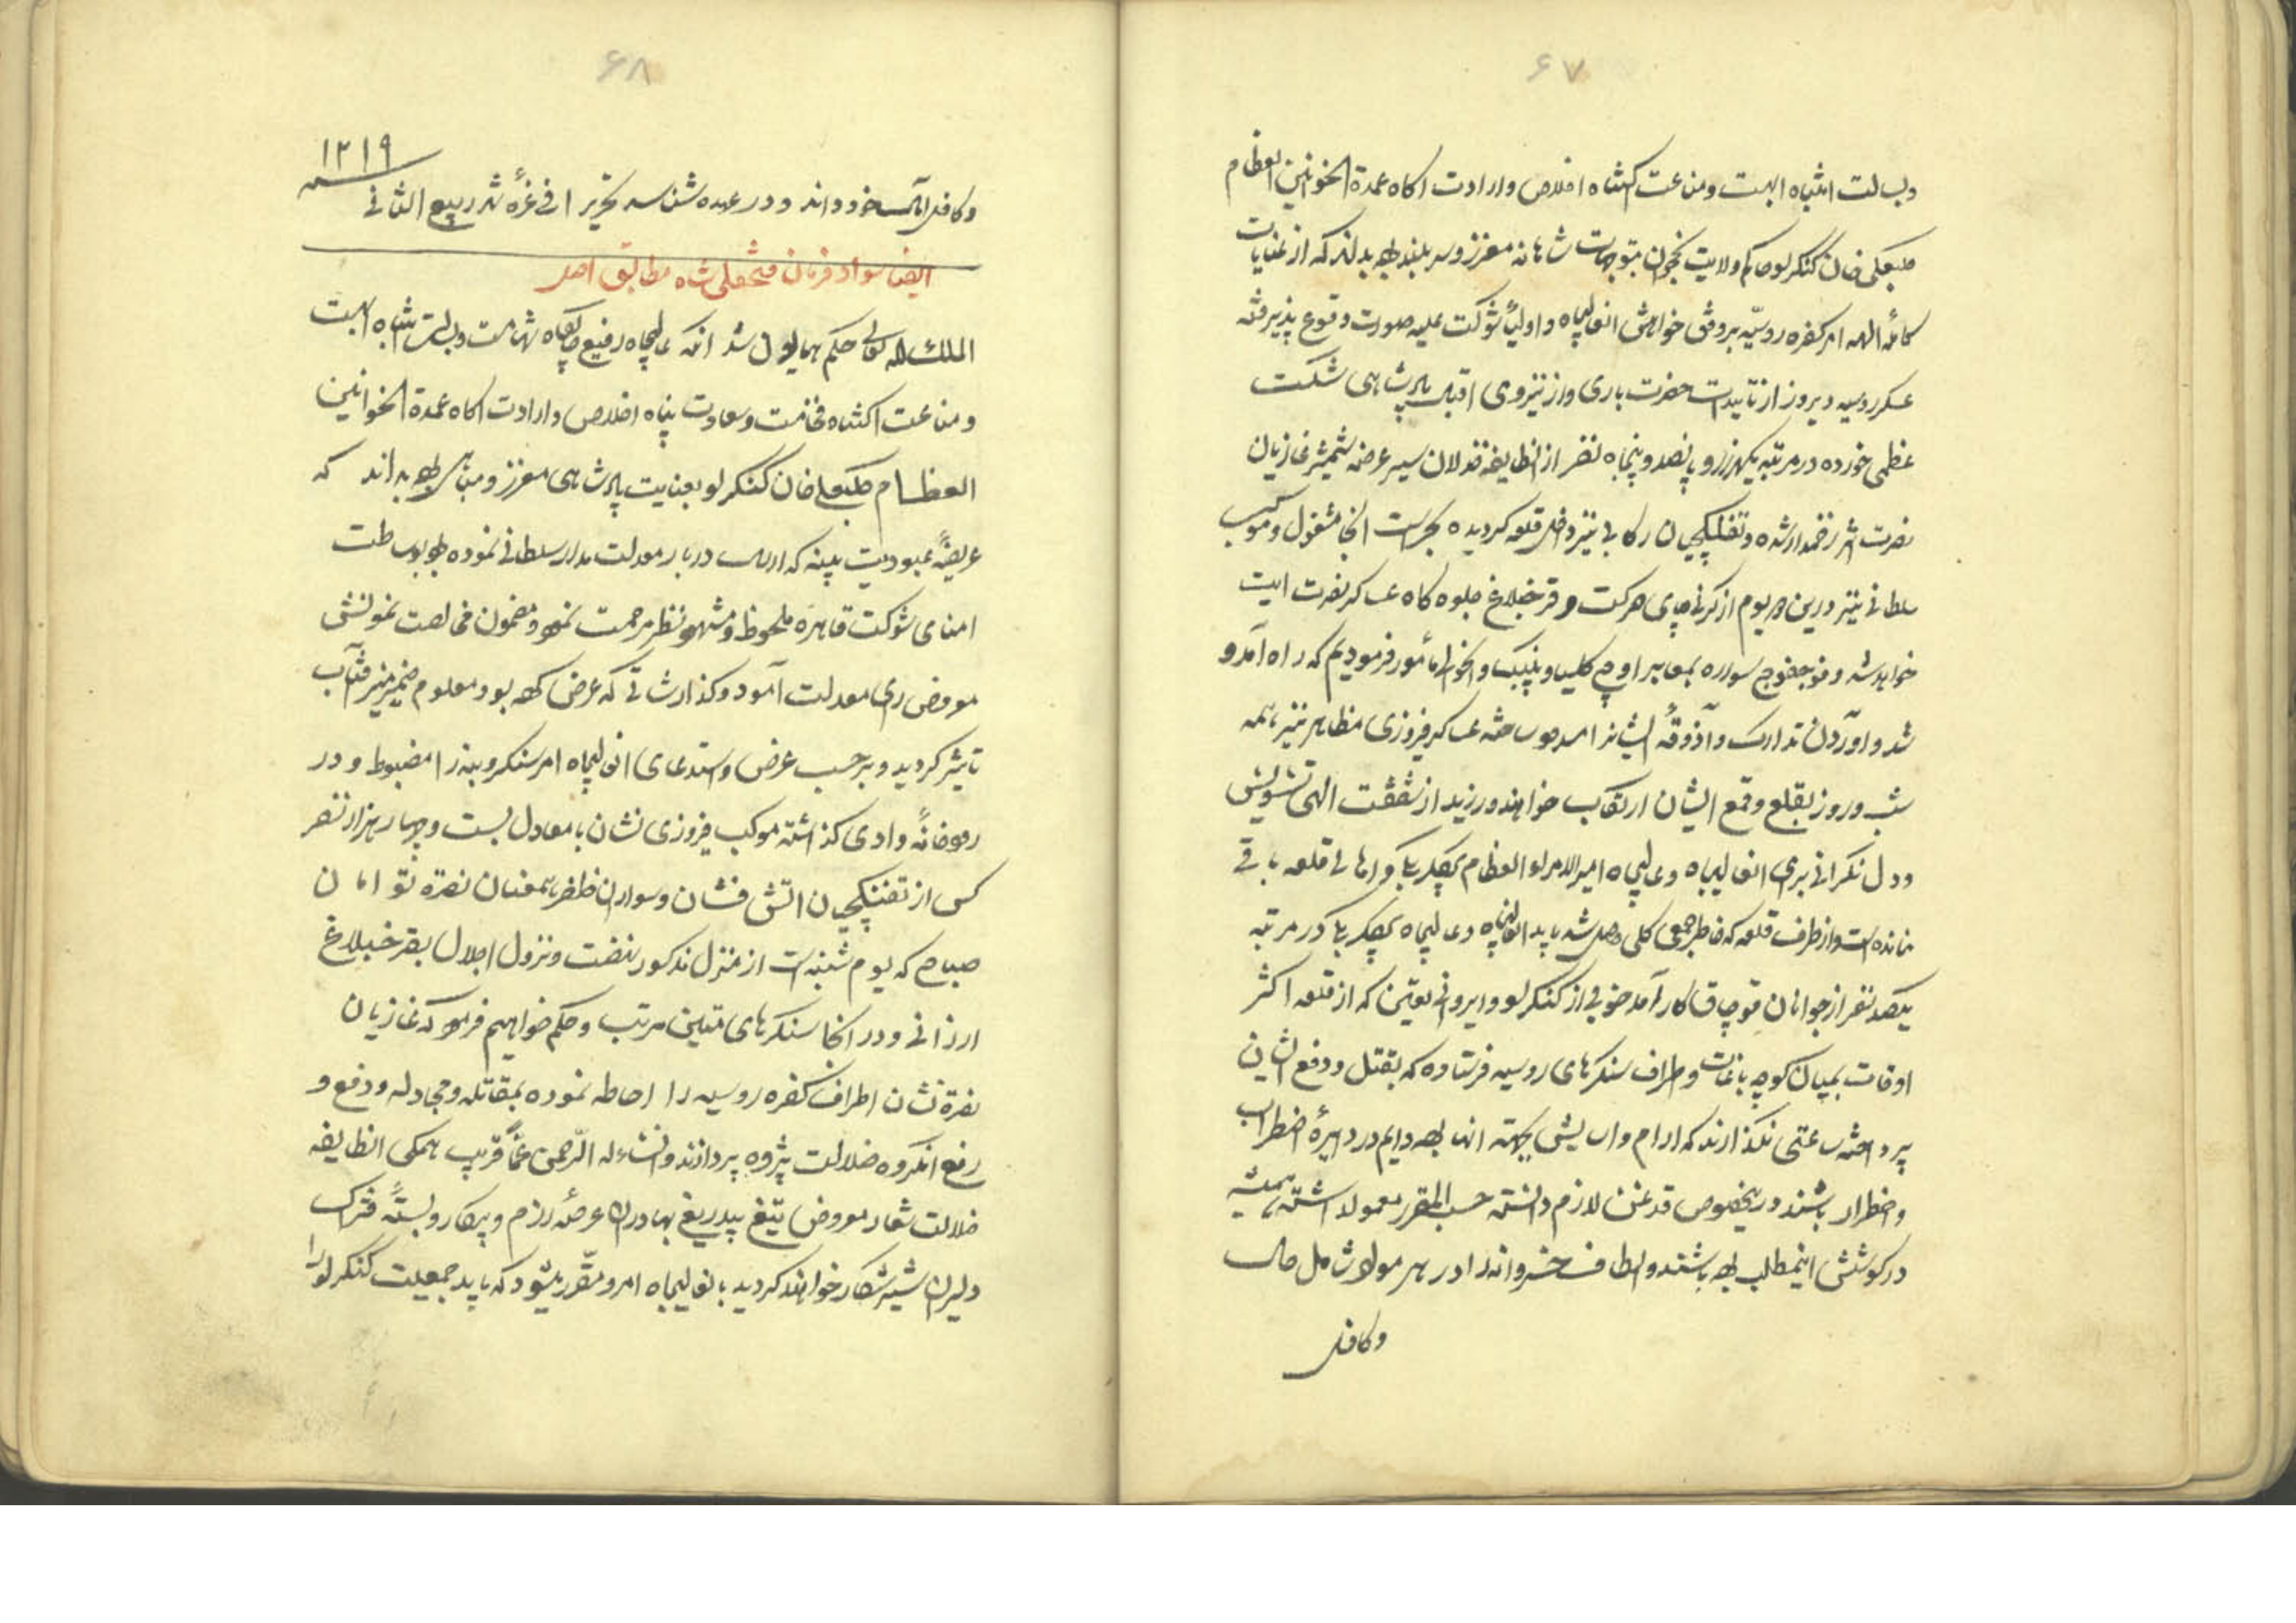 ۶۷
وبسالت انتباه ابهت ومناعت اکتناه اخلاص وارادت اکاه عمدة الخوانین العظام
کلبعلی خان کنکرلو حاکم ولایت نخجوان بتوجهات شاهانه معزز وسربلند بوده بداند که از عنایات
کامله الهیه امر کفره روسیّه بر وفق خواهش انعالیجاه و اولیای شوکت علیه صورت وقوع پذیرفته
عسکر روسیه دیروز از تاییدات حضرت باری واز نیروی اقبال پادشاهی شکست
عظمی خورده در مرتبه یکهزار و پانصد و پنجاه نفر از انطایفه خذلان سیر عرضه شمشیر غازیان
نصرت اثر زخمدار شده و تفنکچیان رکابی نیز داخل قلعه کردیده بحراست انجا مشغول و موکب
سلطانی نیز درین دو یوم از کرنی چای حرکت و قرخبلاغ جلوه کاه عساکر نصرت ایت
خواهد شد و فوج فوج سواره بمعابر اوچ کلیسا و پنبک و اخوال مأمور فرمودیم که راه آمد و
شد و اوردن تدارک و آذوقهٔ ایشانرا مسدود ساخته عساکر فیروزی مظاهر نیز همه
شب و روز بقلع و قمع ایشان ارتکاب خواهند ورزید از شفقت الهی تشویش
و دل نکرانی برای انعالیجاه و عالیجاه امیر الامراء العظام بیکلر بیکی و اهالی قلعه باقی
نمانده است و از طرف قلعه که خاطر جمعی کلی حاصل شد باید انعالیجاه و عالیجاه بیکلر بیکی در مرتبه
یکصد نفر از جوانان قوچاق کار آمد خوبی از کنکرلو و ایروانی تعیین که از قلعه اکثر
اوقات بمیان کوچه باغات و اطراف سنکرهای روسیه فرستاده که بقتل و دفع ایشان
پرداخته ساعتی نکذارند که ارام و اسایشی بجهته انها بوده دایم در دایرهٔ اضطراب
و اضطرار باشند در اینخصوص قدغن لازم دانسته حسب المقرر معمول داشته همیشه
در کوشش اینمطلب بوده باشند و الطاف خسروانه را در هر مواد شامل حال
و کافل
۶۸
و کافل امال خود داند و در عهده شناسد تحریرا فی غرهٔ شهر ربیع الثانی سنه ۱۲۱۹
ایضا سواد فرمان فتحعلی شاه مطابق اصل
الملک لله تعالی حکم همایون شد انکه عالیجاه رفیع جایکاه شهامت و بسالت انتباه ابهت
و مناعت اکتناه فخامت و سعادت پناه اخلاص و ارادت اکاه عمدة الخوانین
العظام کلبعلی خان کنکرلو بعنایت پادشاهی معزز و مباهی بوده بداند که
عریضهٔ عبودیت بینه که ارسال دربار معدلت مدار سلطانی نموده بود بوساطت
امنای شوکت قاهره ملحوظ و مشهود نظر مرحمت نمود و مضمون مخالصت نمونش
معروض رای معدلت آمود و کذارشاتی که عرض کرده بود معلوم ضمیر منیر آفتاب
تاثیر کردید و بر حسب عرض و استدعای انعالیجاه امر سنکر و بنه را مضبوط و در
رودخانهٔ وادی کذاشته موکب فیروزی نشان با معادل بیست و چهار هزار نفر
کس از تفنکچیان اتش فشان و سواران ظفر همعنان نصرة تو امان
صباح که یوم شنبه است از منزل مذکور نهضت و نزول اجلال بقرخبلاغ
ارزانی و در انجا سنکرهای متین مرتب و حکم خواهیم فرمود که غازیان
نصرة نشان اطراف کفره روسیه را احاطه نموده بمقاتله و مجادله و دفع و
رفع انکروه ضلالت پژوه پردازند و انشاء الله الرّحمن عمّا قریب همکی انطایفه
ضلالت شعار معروض تیغ بیدریغ بهادران عرصهٔ رزم و پیکار و بستهٔ فتراک
دلیران شیر شکار خواهند کردید بانعالیجاه امر و مقّرر میشود که باید جمعیت کنکرلو را